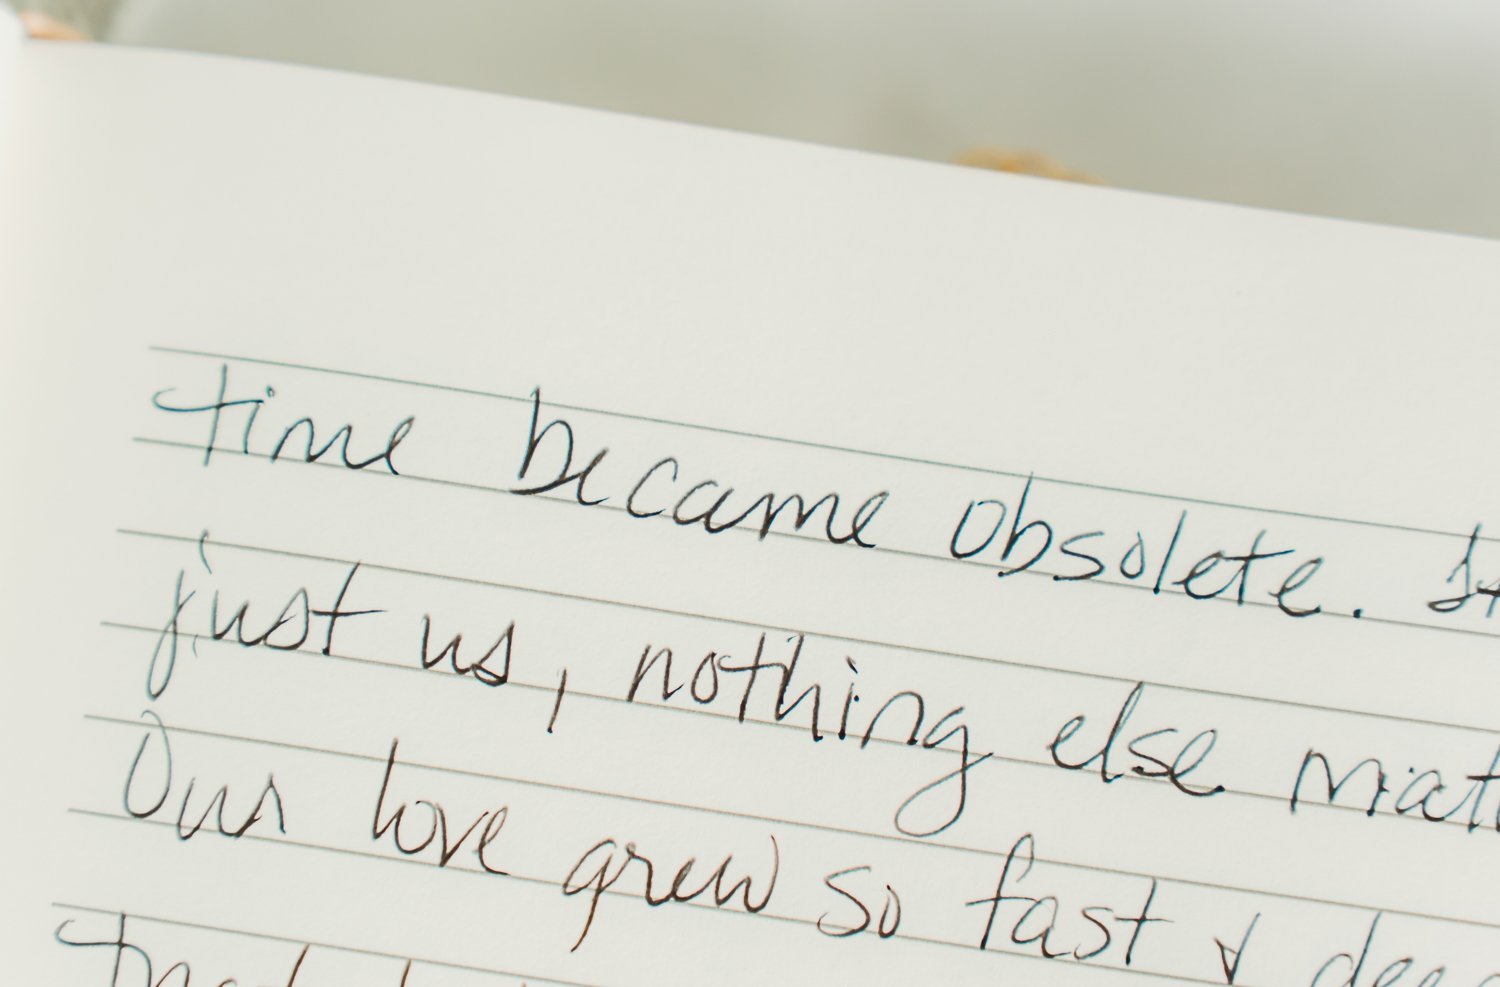 time became obsolete. It
just us, nothing else matt
Our love grew so fast & deep
that